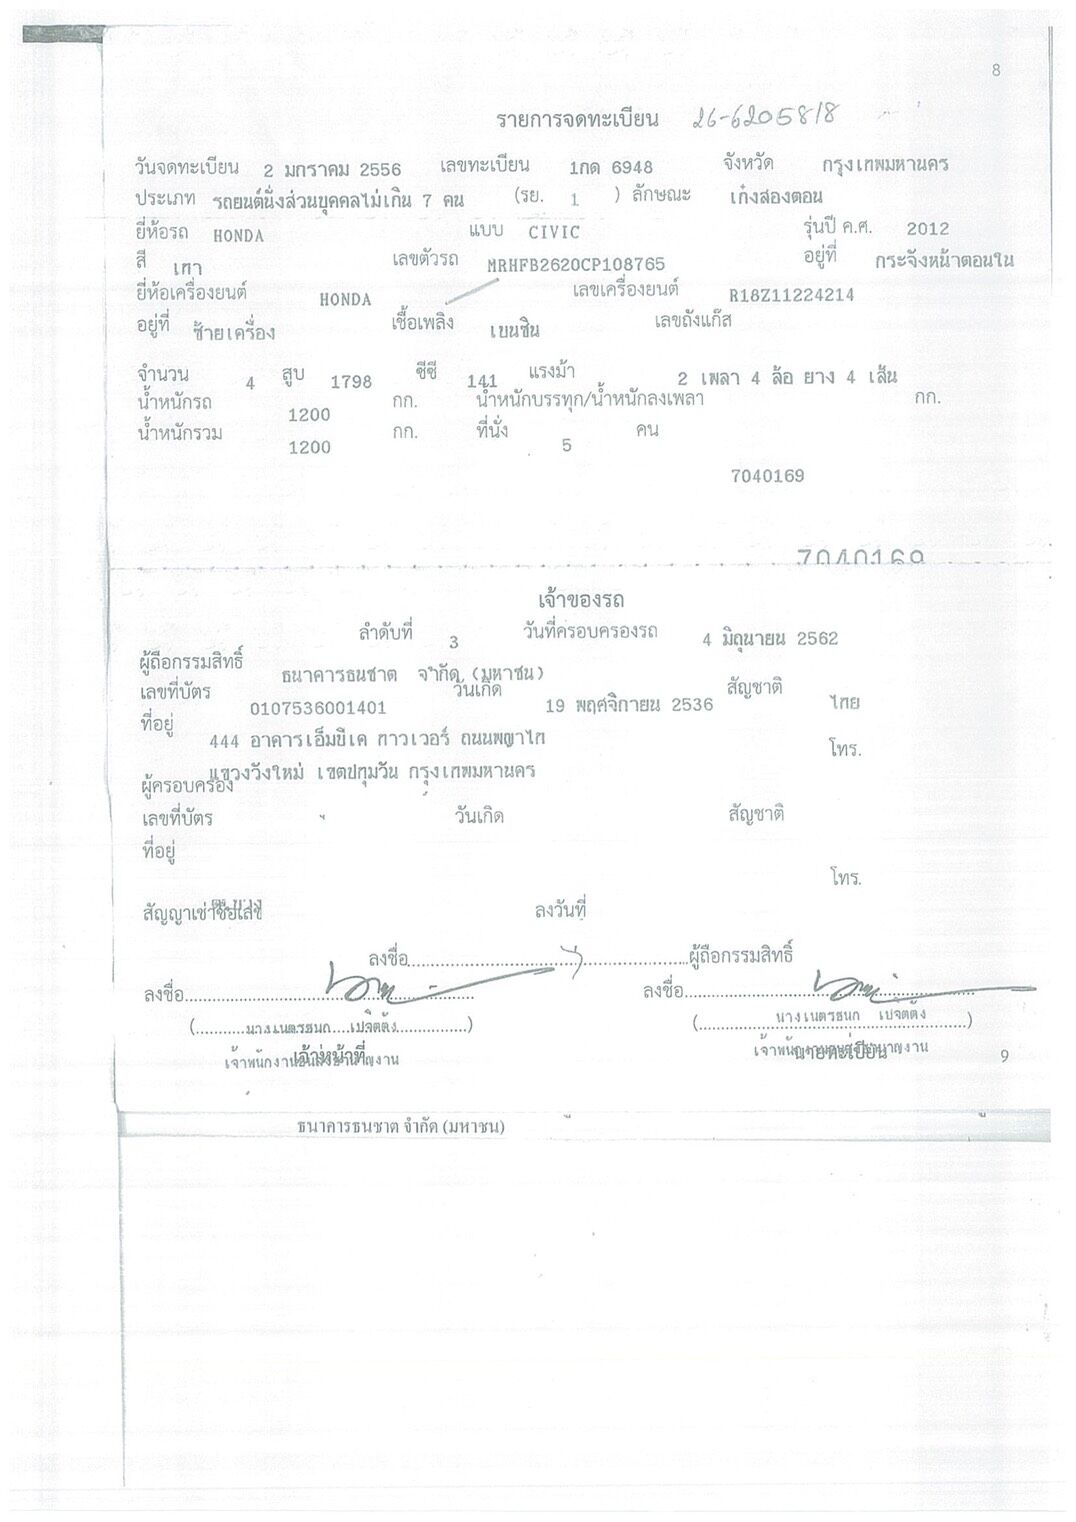 8
รายการจดทะเบียน 26-6205818
วันจดทะเบียน 2 มกราคม 2556 เลขทะเบียน 1กด 6948 จังหวัด กรุงเทพมหานคร
ประเภท รถยนต์นั่งส่วนบุคคลไม่เกิน 7 คน (รย. 1 ) ลักษณะ เก๋งสองตอน
ยี่ห้อรถ HONDA แบบ CIVIC รุ่นปี ค.ศ. 2012
สี เทา เลขตัวรถ MRHFB2620CP108765 อยู่ที่ กระจังหน้าตอนใน
ยี่ห้อเครื่องยนต์ HONDA เลขเครื่องยนต์ R18Z11224214
อยู่ที่ ซ้ายเครื่อง เชื้อเพลิง เบนซิน เลขถังแก๊ส
จำนวน 4 สูบ 1798 ซีซี 141 แรงม้า 2 เพลา 4 ล้อ ยาง 4 เส้น
น้ำหนักรถ 1200 กก. น้ำหนักบรรทุก/น้ำหนักลงเพลา กก.
น้ำหนักรวม 1200 กก. ที่นั่ง 5 คน
7040169
7040169
เจ้าของรถ
ลำดับที่ 3 วันที่ครอบครองรถ 4 มิถุนายน 2562
ผู้ถือกรรมสิทธิ์ ธนาคารธนชาต จำกัด (มหาชน)
เลขที่บัตร 0107536001401 วันเกิด 19 พฤศจิกายน 2536 สัญชาติ ไทย
ที่อยู่ 444 อาคารเอ็มบีเค ทาวเวอร์ ถนนพญาไท โทร.
แขวงวังใหม่ เขตปทุมวัน กรุงเทพมหานคร
ผู้ครอบครอง
เลขที่บัตร วันเกิด สัญชาติ
ที่อยู่
โทร.
สัญญาเช่าซื้อเลขที่ ลงวันที่
ลงชื่อ ผู้ถือกรรมสิทธิ์
ลงชื่อ ลงชื่อ
(นางเนตรชนก เปจิตต์ง) (นางเนตรชนก เปจิตต์ง)
เจ้าหน้าที่ นายทะเบียน
เจ้าพนักงานขนส่งชำนาญงาน เจ้าพนักงานขนส่งชำนาญงาน 9
ธนาคารธนชาต จำกัด (มหาชน)